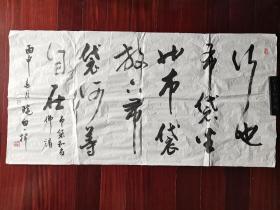 行也
布袋坐
也布袋
放下布
袋何等
自在
布袋和尚
佛语
丙申